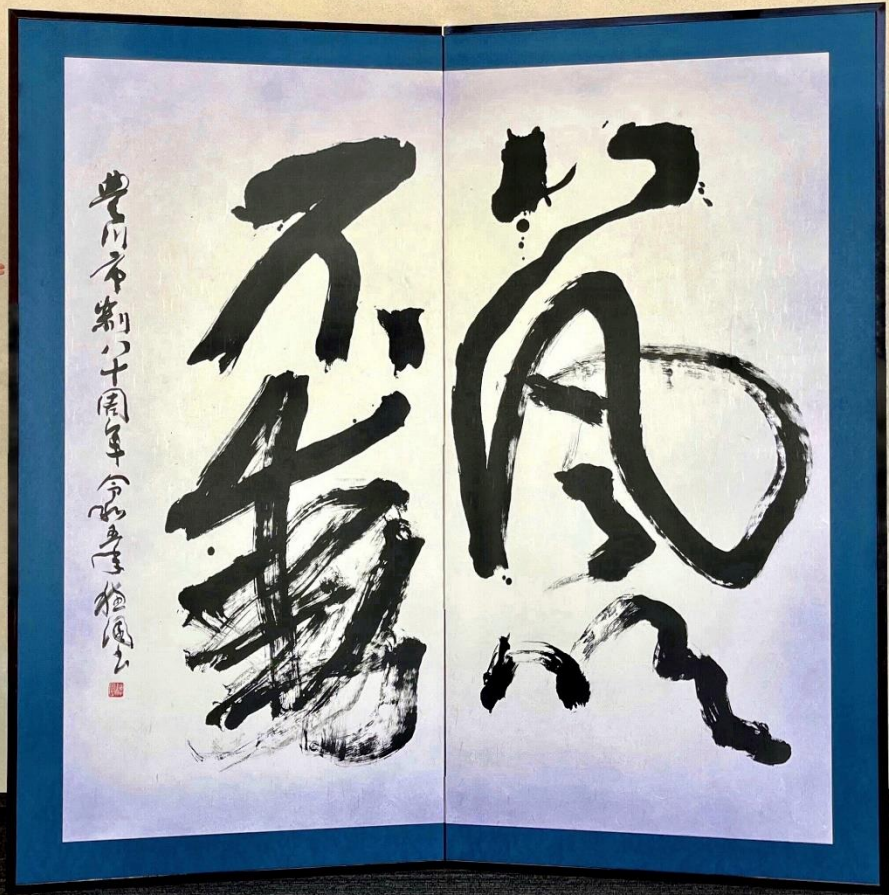 八風吹
不動
豊川市制八十周年 令和五年 書